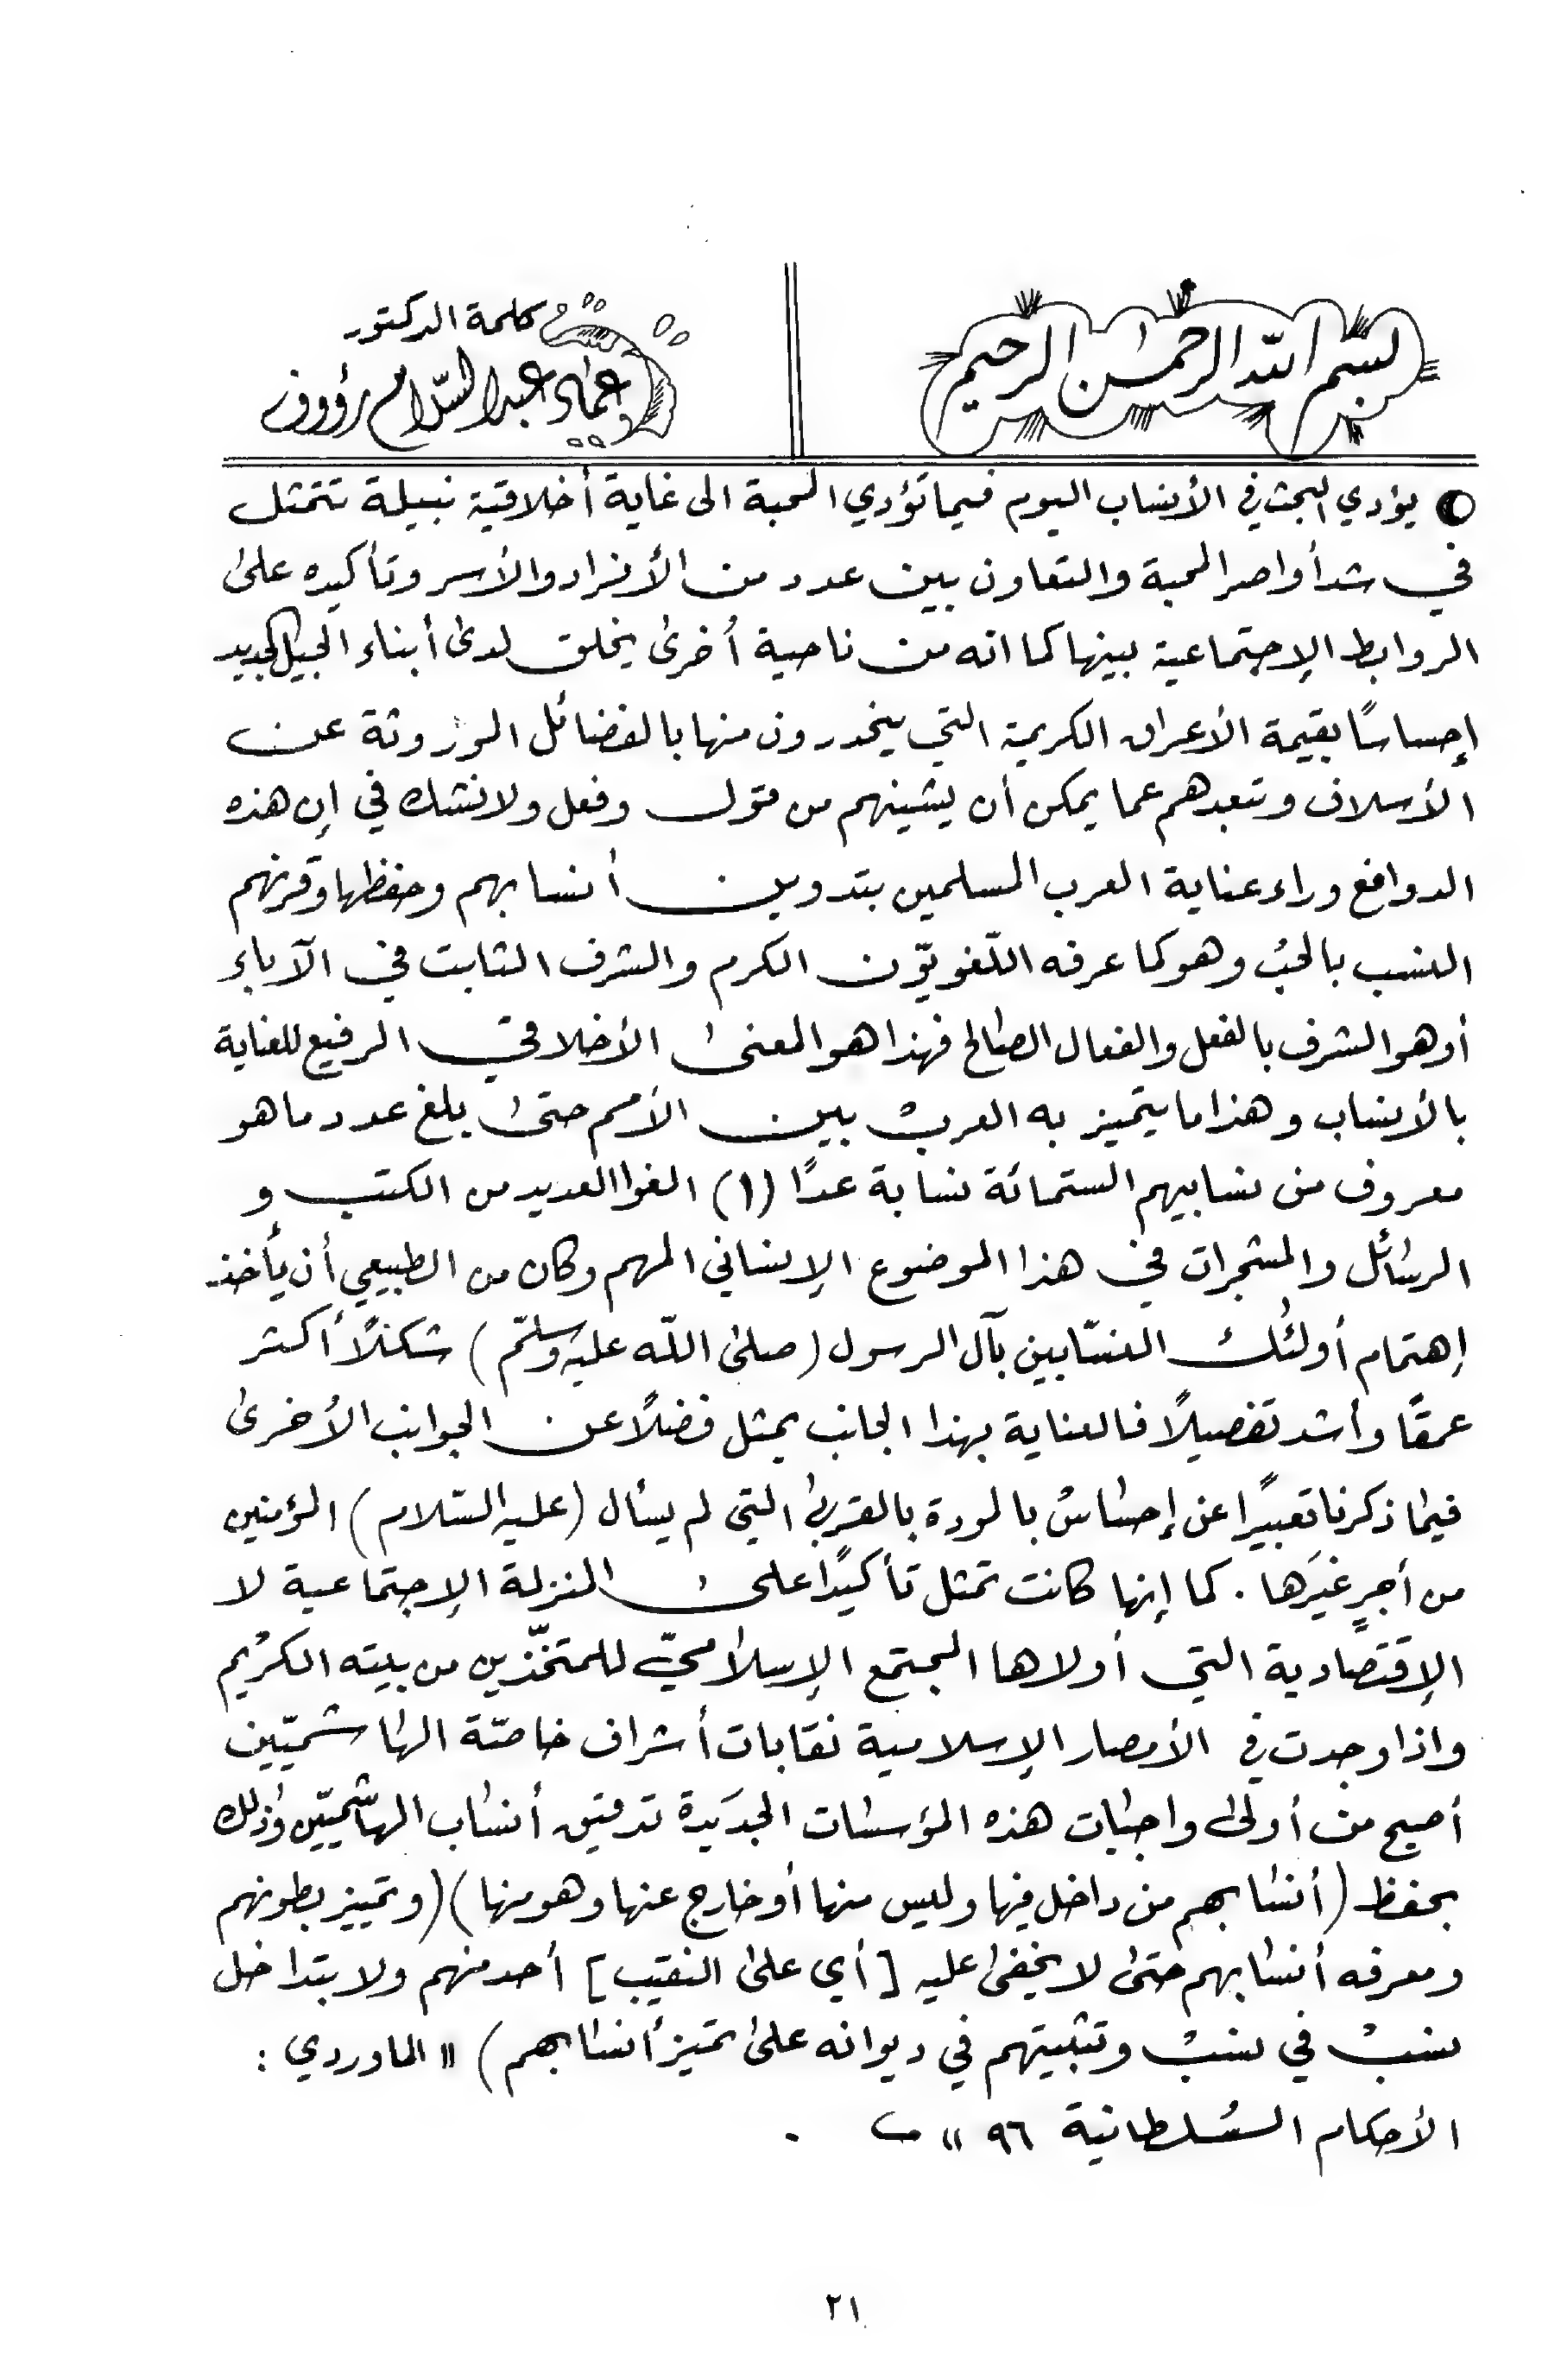 بسم الله الرحمن الرحيم
كلمة الدكتور
عماد عبد السّلام رؤوف
يؤدي البحث في الأنساب اليوم فيما تؤدي المحبة الى غاية أخلاقية نبيلة تتمثل
في شد أواصر المحبة والتعاون بين عدد من الأفراد والأسر وتأكيده على
الروابط الإجتماعية بينها كما انه من ناحية أخرى يخلق لدى أبناء الجيل الجديد
إحساسًا بقيمة الأعراق الكريمة التي ينحدرون منها بالفضائل الموروثة عن
الأسلاف وتبعدهم عما يمكن أن يشينهم من قول وفعل ولانشك في إن هذه
الدوافع وراء عناية العرب المسلمين بتدوين أنسابهم وحفظها وقرنهم
النسب بالحسب وهو كما عرفه اللّغويّون الكرم والشرف الثابت في الآباء
أو هو الشرف بالفعل والفعال الصالح فهذا هو المعنى الأخلاقي الرفيع للعناية
بالأنساب وهذا ما يتميز به العرب بين الأمم حتى بلغ عدد ما هو
معروف من نسابيهم الستمائة نسابة عدًا (١) الفوا العديد من الكتب و
الرسائل والمشجرات في هذا الموضوع الإنساني المهم وكان من الطبيعي أن يأخذ
إهتمام أولئك النسّابين بآل الرسول (صلى اللّه عليه وسلّم) شكلًا أكثر
عمقًا وأشد تفصيلًا فالعناية بهذا الجانب يمثل فضلًا عن الجوانب الأخرى
فيما ذكرنا تعبيرًا عن إحساس بالمودة بالقربى التي لم يسأل (عليه السّلام) المؤمنين
من أجرٍ غيَرها . كما إنها كانت تمثل تأكيدًا على المنزلة الإجتماعية لا
الإقتصادية التي أولاها المجتمع الإسلاميّ للمتحدّرين من بيته الكريم
واذا وجدت في الأمصار الإسلامية نقابات أشراف خاصّة الهاشميّين
أصبح من أولى واجبات هذه المؤسسات الجديدة تدقيق أنساب الهاشميّين وذلك
بحفظ (أنسابهم من داخل فيها وليس منها أو خارج عنها وهو منها) (وتمييز بطونهم
ومعرفه أنسابهم حتى لا يخفى عليه [أي على النقيب] أحد منهم ولا يتداخل
نسبْ في نسبْ وتثبيتهم في ديوانه على تميز أنسابهم) " الماوردي :
الأحكام السُلطانية ٩٦ " .
٢١